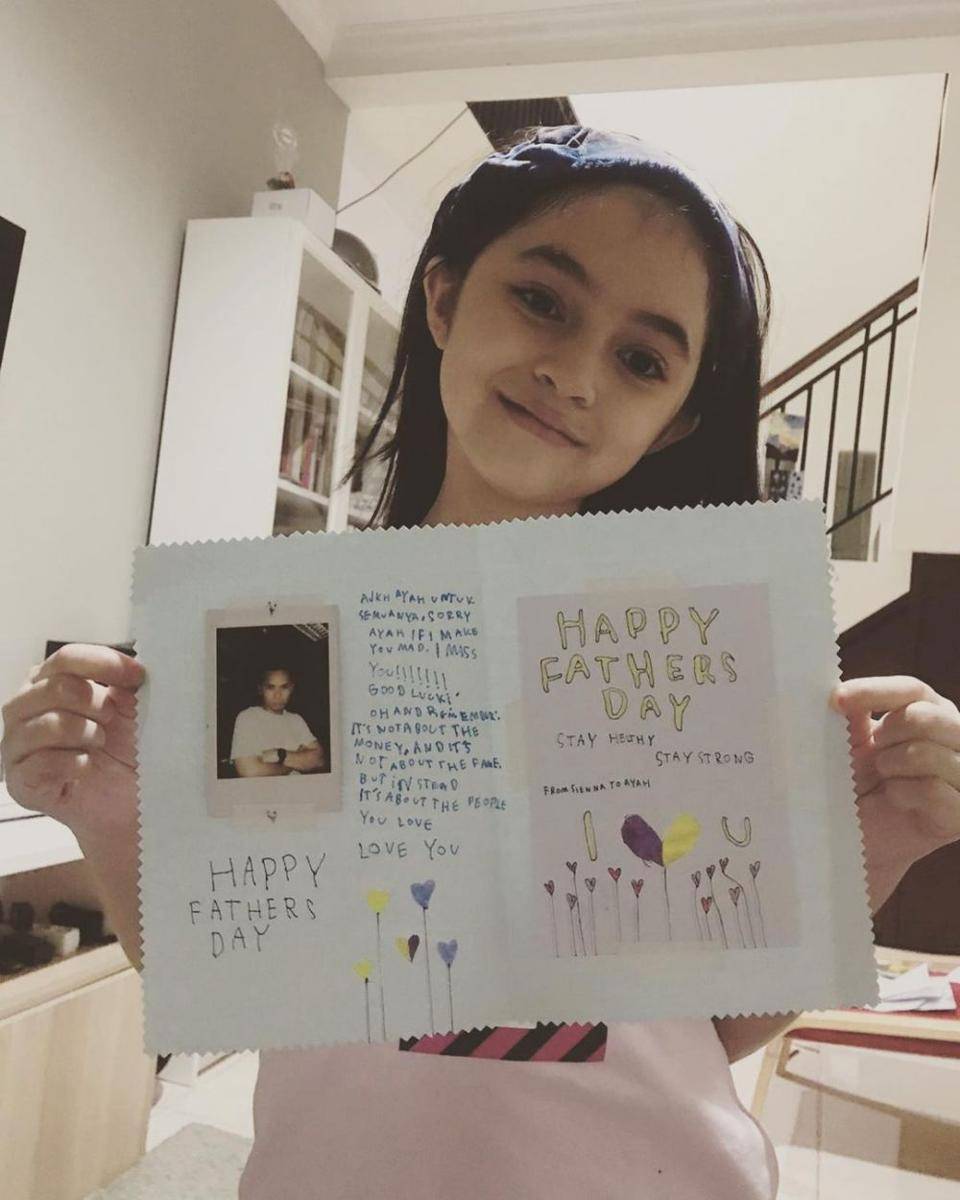 AJKH AYAH UNTUK
SEMUANYA, SORRY
AYAH IF I MAKE
YOU MAD. I MISS
YOU!!!!!!!
GOOD LUCK!
OH AND REMEMBER.
IT'S NOT ABOUT THE
MONEY, AND IT'S
NOT ABOUT THE FAME.
BUT INSTEAD
IT'S ABOUT THE PEOPLE
YOU LOVE
LOVE YOU
HAPPY
FATHERS
DAY
HAPPY
FATHERS
DAY
STAY HELTHY
STAY STRONG
FROM SIENNA TO AYAH
I U